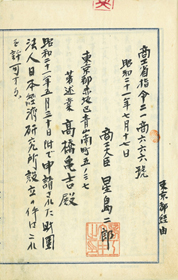 東京都経由
商工省指令二一商六六六號
昭和二十一年七月十七日
商工大臣 星島二郎
東京都赤坂区青山南町五ノ三七
著述業 高橋亀吉殿
昭和二十一年五月三十一日付で申請された財團
法人日本経済研究所設立の件はこれ
を許可する